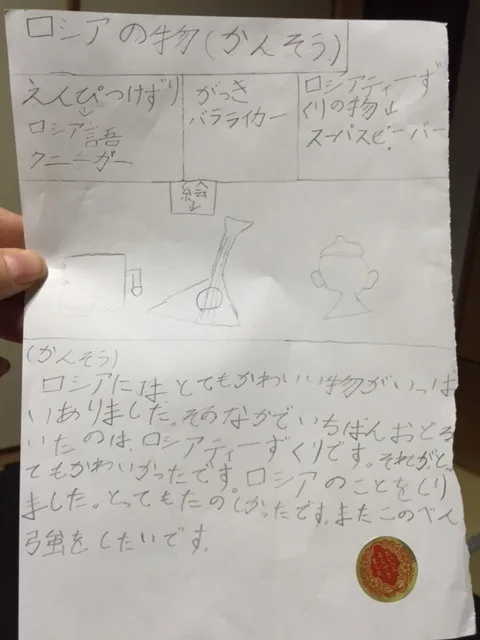 ロシアの物(かんそう)
えんぴつけずり
↓
ロシア語
クニーガー
がっき
バラライカー
ロシアティーず
くりの物↓
スーパスビーバー
絵
↓
(かんそう)
ロシアには とてもかわいい物がいっぱ
いありました。そのなかでいちばんおどろ
いたのは、ロシアティーずくりです。それがとっ
てもかわいかったです。ロシアのことをしり
ました。とってもたのしかったです。またこのべん
強をしたいです。